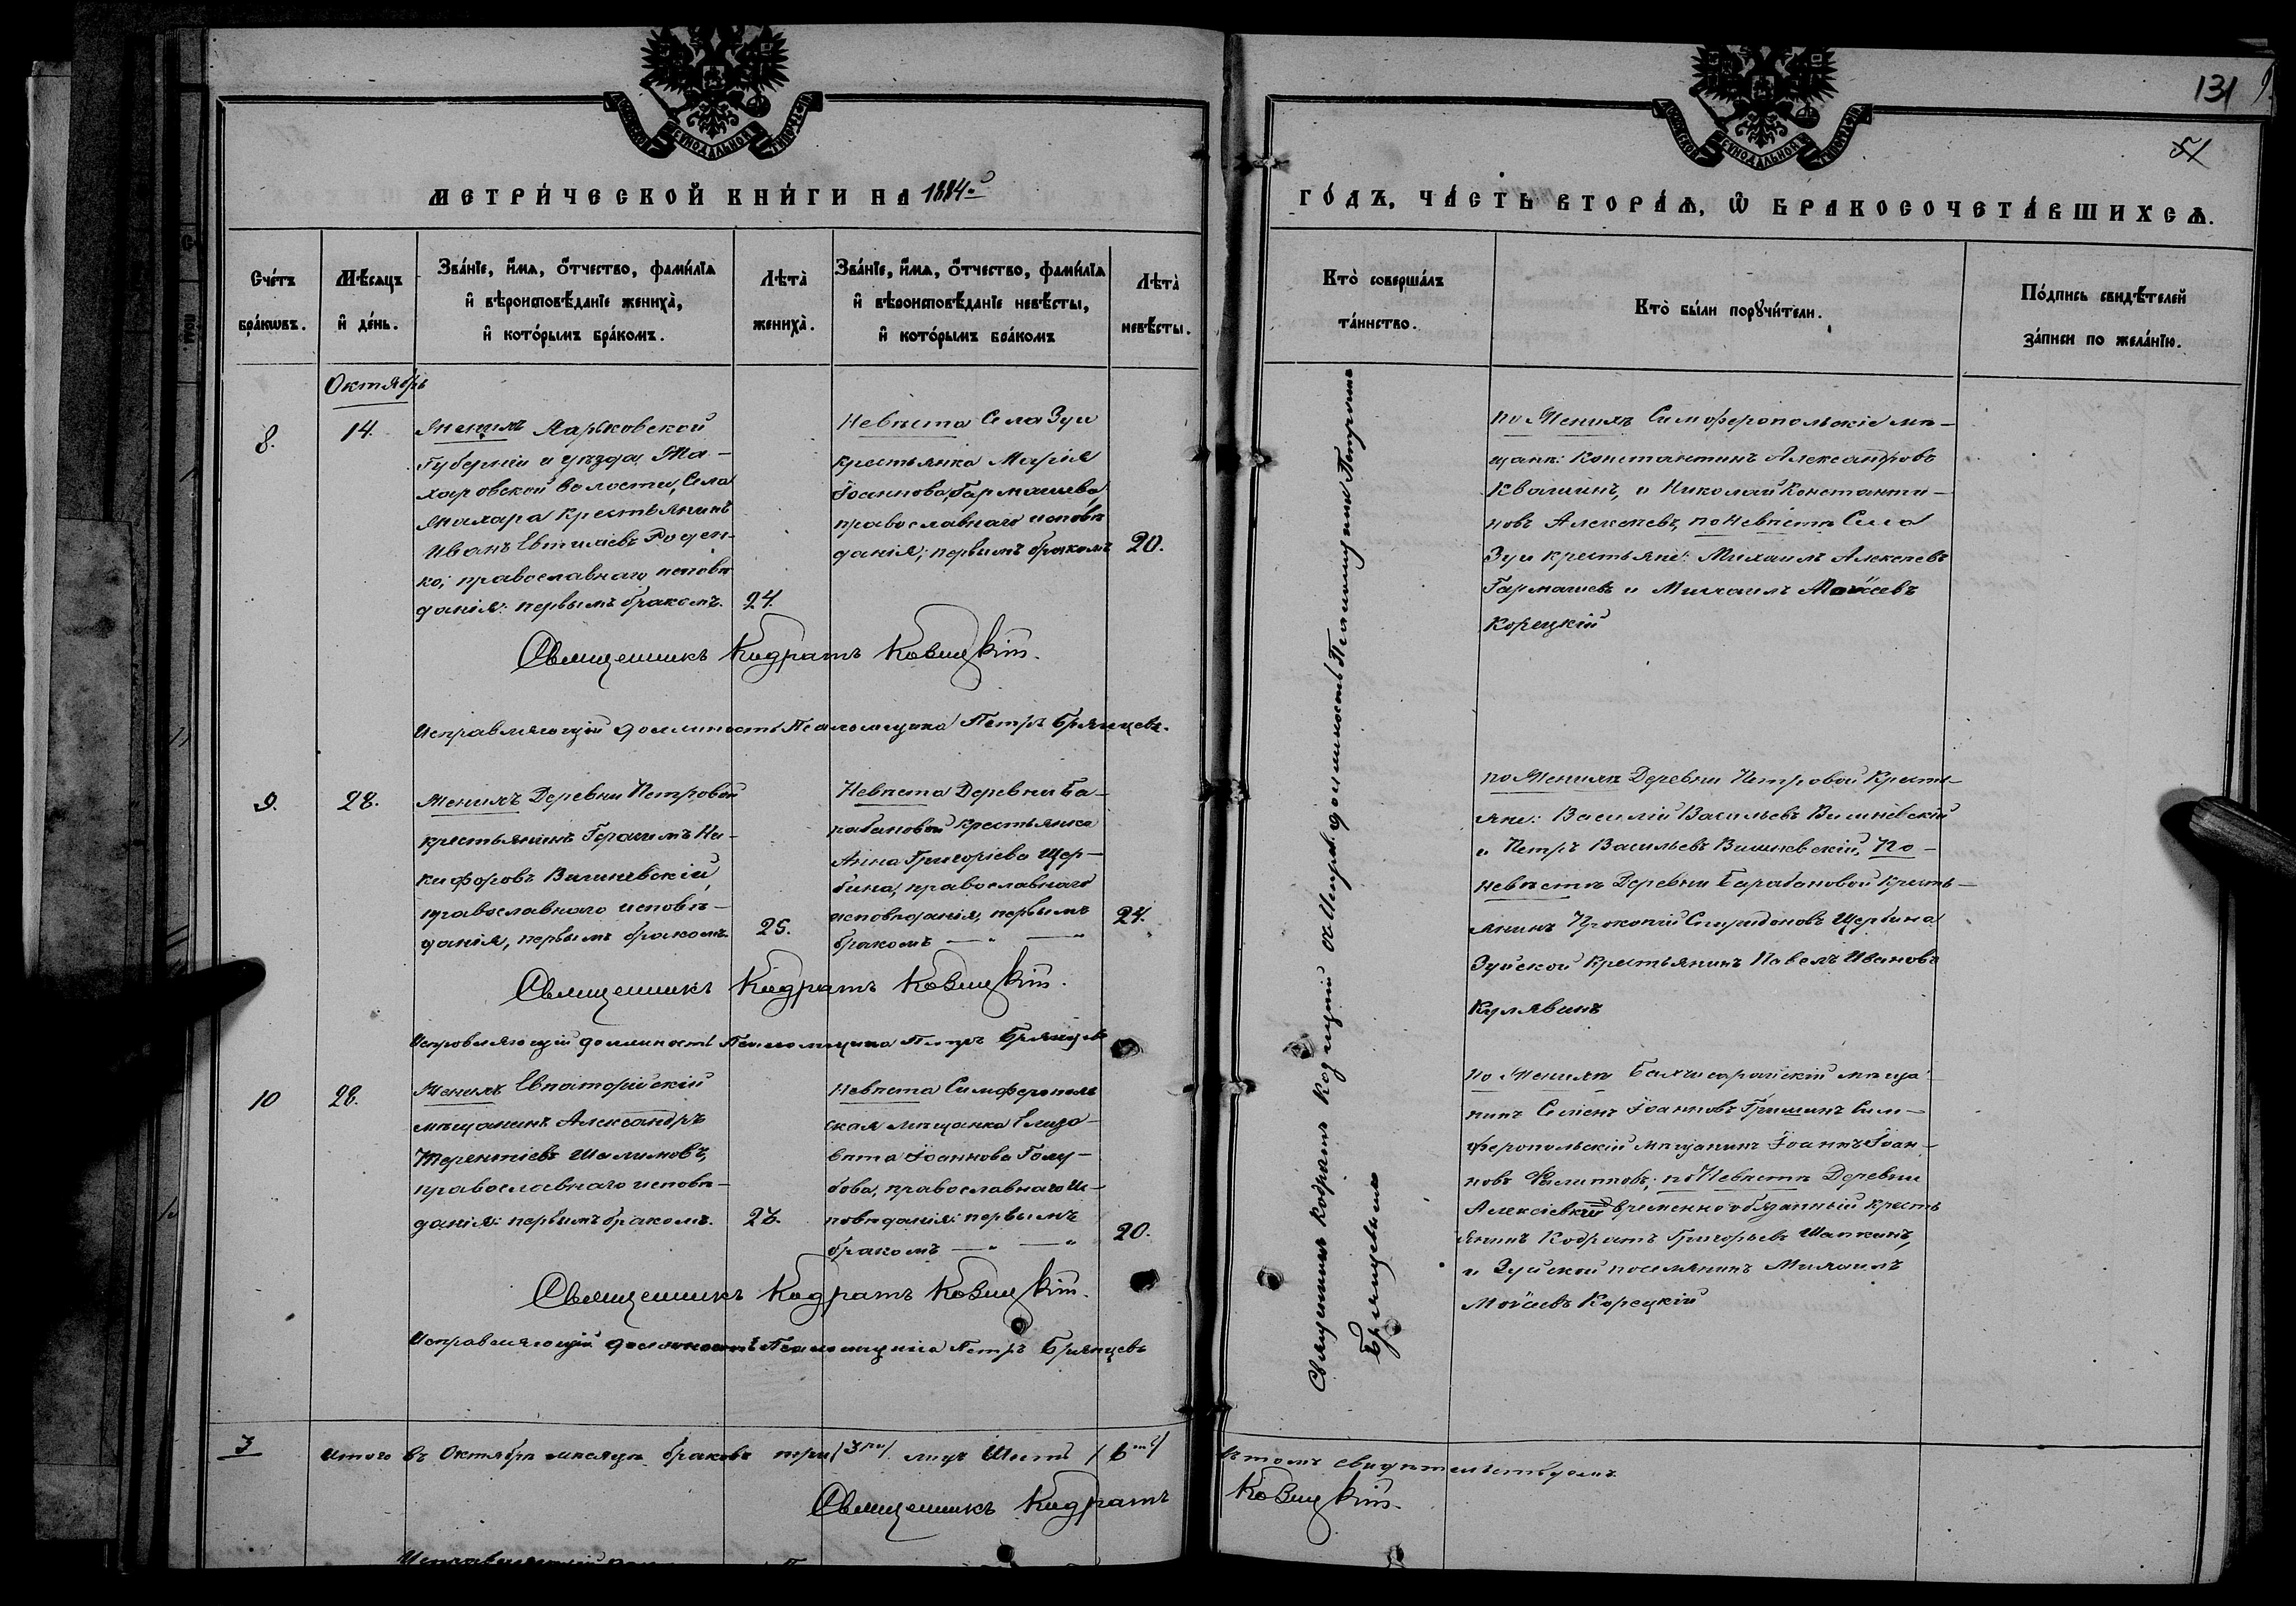 131
51
МОСКОВСКОЙ СѴНОДАЛЬНОЙ ТИПОГРАФІИ
МОСКОВСКОЙ СѴНОДАЛЬНОЙ ТИПОГРАФІИ
МЕТРИ́ЧЕСКОЙ КНИ́ГИ НА 1884-й
ГО́ДЪ, ЧА́СТЬ ВТОРА́Ѧ, Ѡ БРАКОСОЧЕТА́ВШИХСѦ.
Сче́тъ бра́кѡвъ.
Мѣ́сѧцъ и҆ де́нь.
Зва́нїе, и҆́мѧ, ѻ҆́тчество, фамı́лїѧ
и҆ вѣроисповѣ́данїе жениха̀,
и҆ кото́рымъ бра́комъ.
Лѣта̀ жениха̀.
Зва́нїе, и҆́мѧ, ѻ҆́тчество, фамı́лїѧ
и҆ вѣроисповѣ́данїе невѣ́сты,
и҆ кото́рымъ бра́комъ
Лѣта̀ невѣ́сты.
Кто̀ соверша́лъ
та́инство.
Кто̀ бы́ли порꙋчи́тели.
По́дпись свидѣ́телей
за́писи по жела́нїю.
Октябрь
8.
14.
Женихъ Харьковской
Губерніи и уѣзда
харовской волости, Села
крестьянинъ
Иванъ Евтихіевъ
ко; православнаго исповѣ
данія: первымъ бракомъ.
24.
Невѣста Села Зуи
крестьянка Марія
Іоаннова Гармашева
православнаго исповѣ
данія; первымъ бракомъ
20.
по Женихѣ Симферопольскіе мѣ-
щане: Константинъ Александровъ
Квашинъ, и Николай Константи-
новъ Алексѣевъ, по Невѣстѣ Села
Зуи крестьяне: Михаилъ Алексѣевъ
Гармашевъ и Михаилъ Моѵсеевъ
Корецкій
Священникъ Кодратъ
Исправляющій должность Псаломщика Петръ Брянцевъ.
9.
28.
Женихъ Деревни Петровой
крестьянинъ Герасимъ Ни-
кифоровъ Вишневскій,
православнаго исповѣ-
данія, первымъ бракомъ.
25.
Невѣста Деревни Ба-
рабановой крестьянка
Анна Григоріева Щер-
бина, православнаго
исповѣданія, первымъ
бракомъ — „ — „
24.
по Женихѣ Деревни Петровой Кресть-
яне: Василій Васильевъ Вишневскій
и Петръ Васильевъ Вишневскій, По-
невѣстѣ Деревни Барабановой Кресть-
янинъ Прокопій Спиридоновъ Щербина
Зуйской Крестьянинъ Павелъ Ивановъ
Кулявинъ
Священникъ Кодратъ
Исправляющій должность Псаломщика Петръ Брянцевъ
10
28.
Женихъ Евпаторійскій
мѣщанинъ Александръ
Терентіевъ Шалимовъ,
православнаго исповѣ-
данія: первымъ бракомъ.
Невѣста Симферополь
ская мѣщанка Елиза-
вета Іоаннова Голу-
бова, православнаго Ис-
повѣданія: первымъ
бракомъ — „ — „
20.
По Женихѣ Бахчисарайскій мѣща-
нинъ Семенъ Іоанновъ Гришинъ Сим-
феропольскій мѣщанинъ Іоаннъ Іоан-
новъ Филипповъ; по Невѣстѣ Деревни
Алексіевкий временнообязанный кресть
янинъ Кодратъ Григорьевъ Шапкинъ,
и Зуйской поселянинъ Михаилъ
Моѵсеевъ Корецкій
Священникъ Кодратъ
Исправляющій должность Псаломщика Петръ Брянцевъ
Священникъ Кодратъ должность Псаломщика Петромъ
Брянцевымъ
3
Итого въ Октябрѣ мѣсяцѣ браковъ три /3ри/ лицъ Шесть /6ть/ въ томъ свидѣтельствуемъ
Священникъ Кодратъ